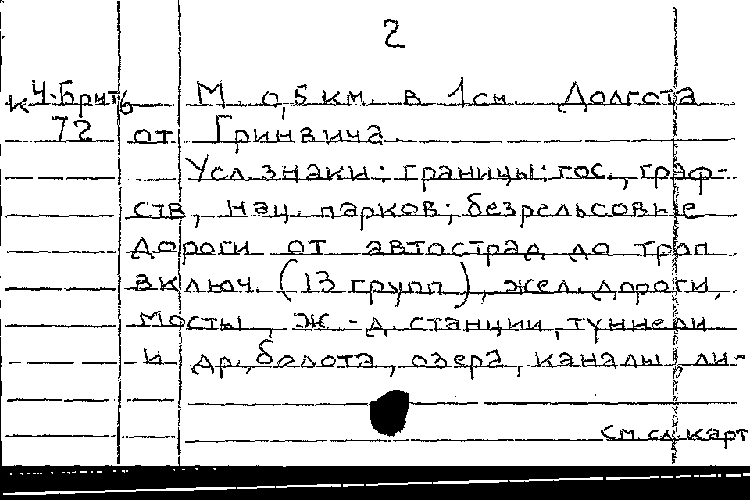 2
К Ч-Брить М 0,5 км. в 1 см Долгота
72 от Гринвича.
Усл. знаки: границы: гос., граф-
ств, нац. парков; безрельсовые
дороги от автострад до троп
включ. (13 групп), жел. дороги,
мосты, ж-д. станции, туннели
и др., болота, озера, каналы, ли-
См. сл. карт